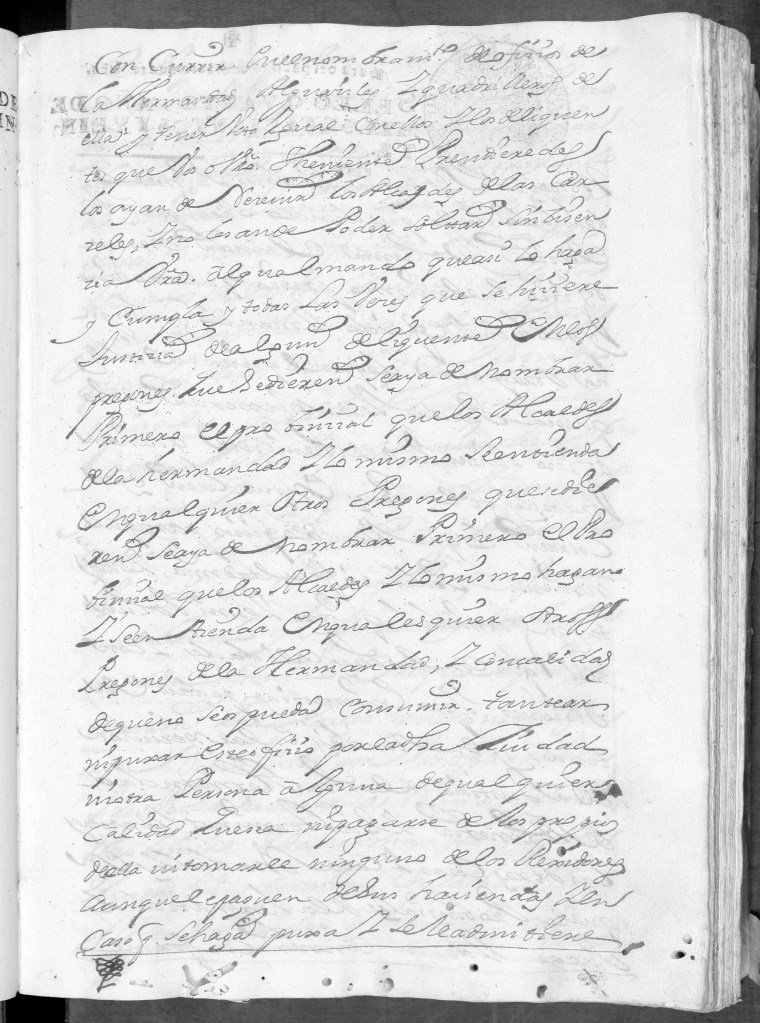 Con Currir En el nombram.to de ofiçios de
la Hermandad Alguaçiles y quadrilleros de
ella y tener Voto ygual Con ellos y los deliquen
tes que Vos o Vro. Theniente Prendieredes
los ayan de Reciuir los Alcaydes de las Car
zeles, y no los an de Poder Soltar Sin lisen
cia Vra. al qual mando que asi lo haga
y Cumpla y todas las Veses que se hiziere
Justicia de algun deliquente En los
pregones que se dieren se aya de nombrar
Primero el pro binsial que los Alcaldes
de la hermandad y lo mismo se entienda
En qualquier otros Pregones que se die
ren se aya de nombrar Primero el Pro
binsial que los Alcaldes y lo mismo hagan
y se en tienda En qualesquier otros
Pregones de la Hermandad, y Con calidad
de que no se os pueda Consumir. tantear
ni puxar este ofiçio por la dha Ziudad
ni otra Persona alguna de qual quiera
Calidad que sea ni pagarse de los propios
de ella ni tomarle ninguno de los Rexidores
aunque le paguen de sus haziendas y en
Caso q se haga puxa y se le admitiere